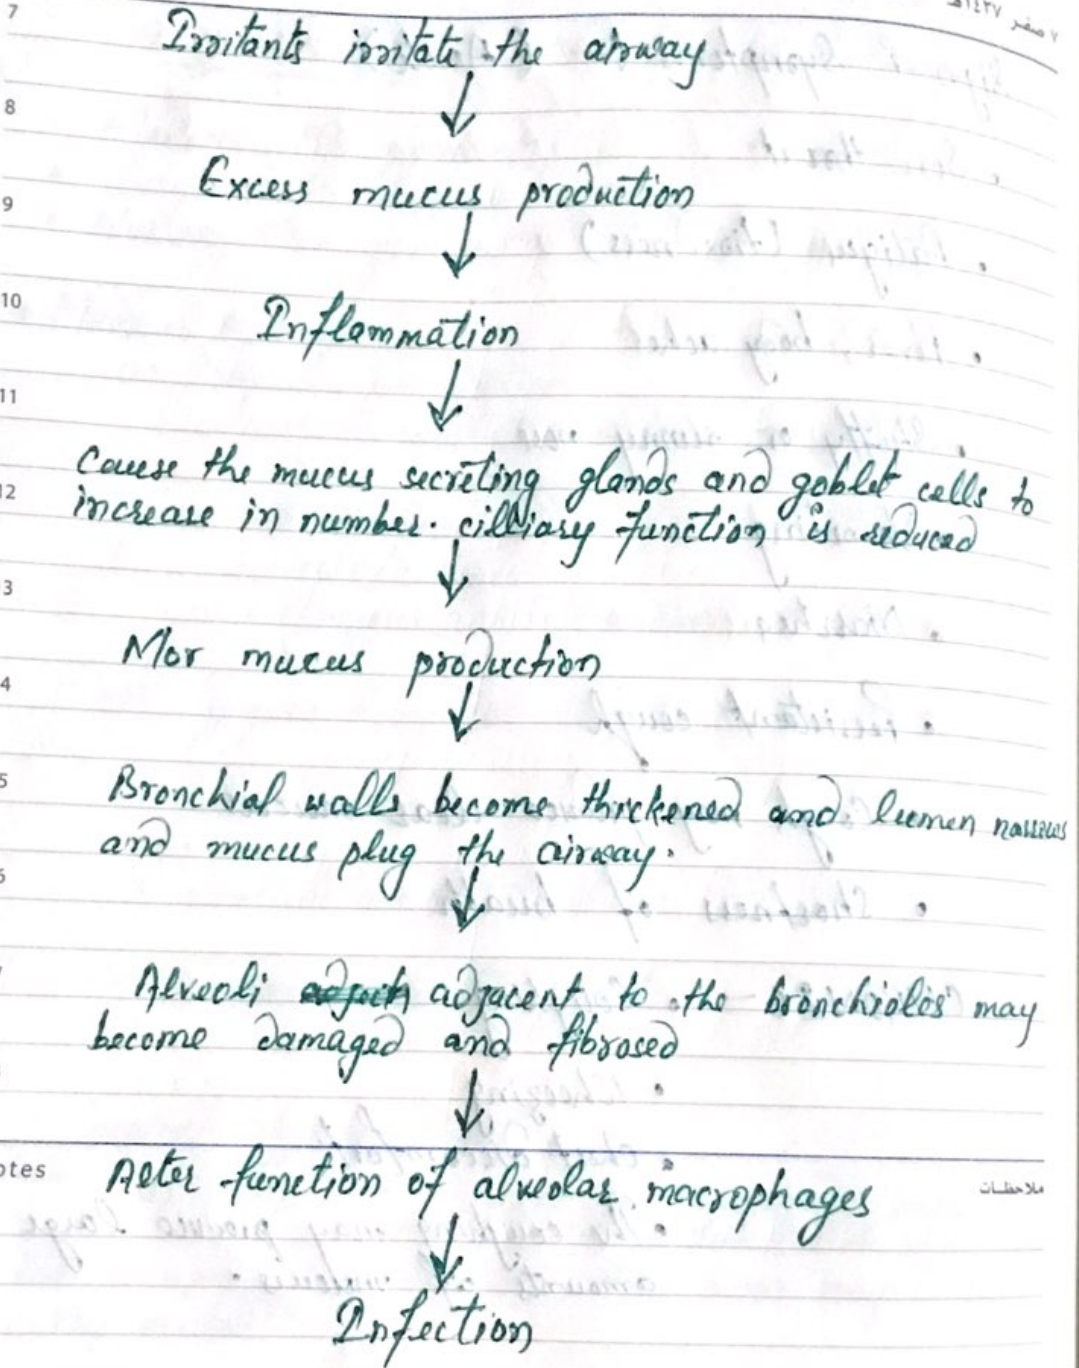 ٧ صفر ١٤٣٧هـ
7
Irritants irritate the airway
↓
8
Excess mucus production
9
↓
10
Inflammation
↓
11
Cause the mucus secreting glands and goblet cells to
12
increase in number. cilliary function is reduced
↓
3
Mor mucus production
4
↓
5
Bronchial walls become thrickened and lumen narrows
and mucus plug the airway.
6
↓
Alveoli adjacent to the bronchioles may
become damaged and fibrosed
↓
otes
ملاحظات
Alter function of alveolar macrophages
↓
Infection